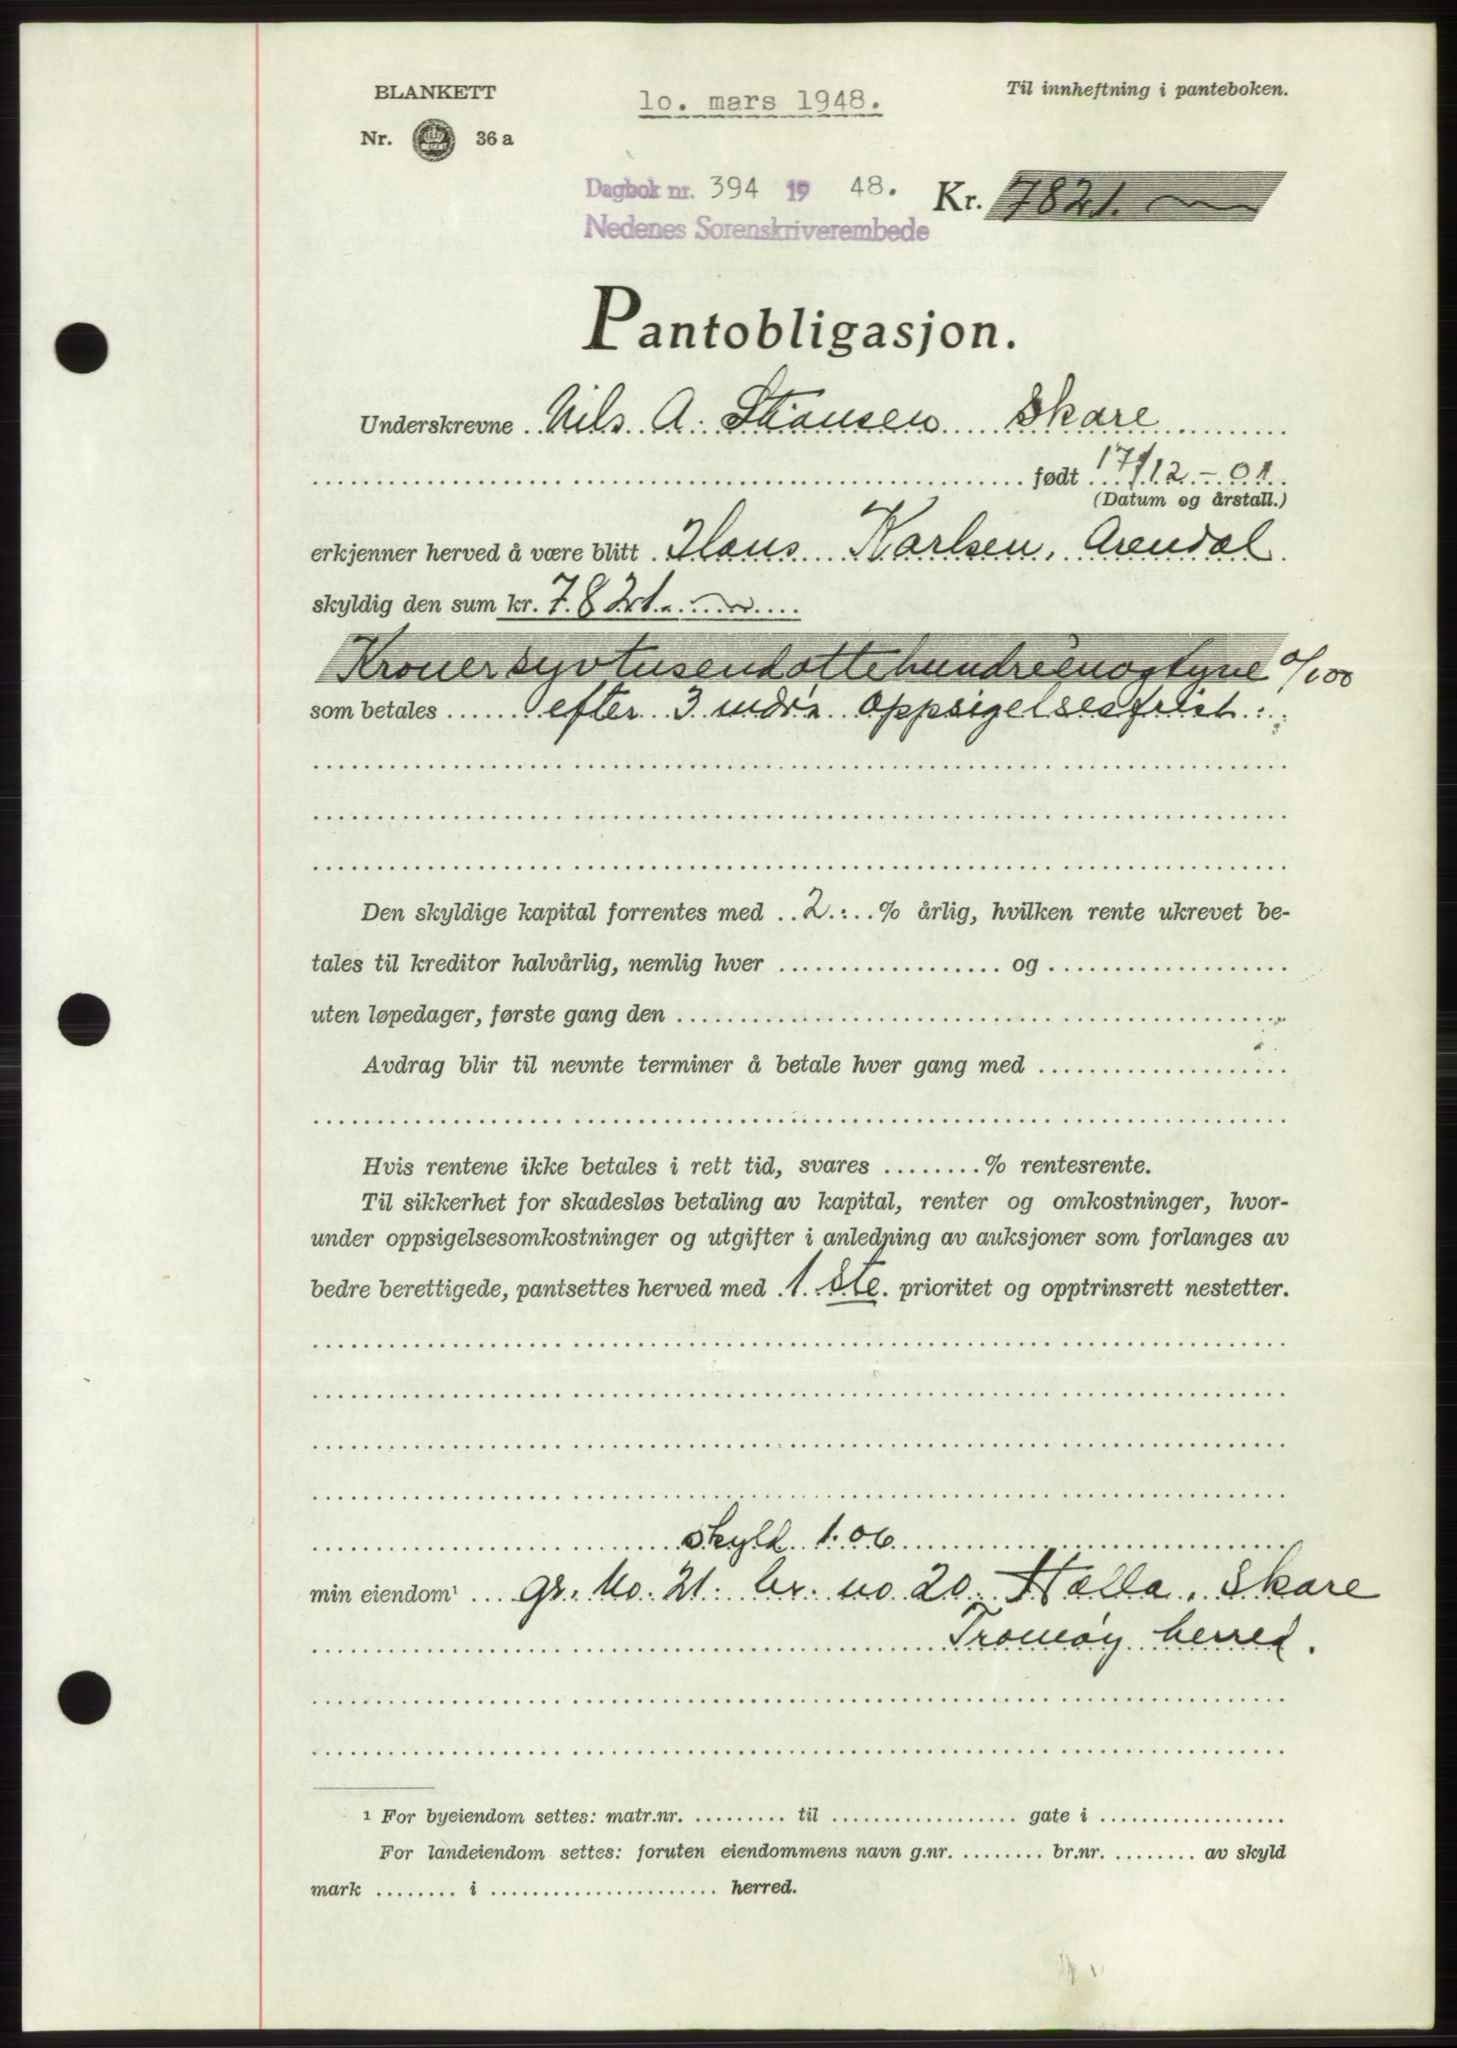 BLANKETT
Nr. 36 a
10. mars 1948.
Til innheftning i panteboken.
Dagbok nr. 394 19 48.
Nedenes Sorenskriverembede
Kr. 7821.
Pantobligasjon.
Underskrevne Nils A. Skare
født 17/12 - 01
(Datum og årstall.)
erkjenner herved å være blitt Hans Karlsen, Arendal
skyldig den sum kr. 7821.
Kroner syvtusenåttehundreenogtyve 0/100
som betales efter 3 mdr's oppsigelsesfrist.
Den skyldige kapital forrentes med 2 % årlig, hvilken rente ukrevet be-
tales til kreditor halvårlig, nemlig hver ........ og ........
uten løpedager, første gang den ........
Avdrag blir til nevnte terminer å betale hver gang med ........
Hvis rentene ikke betales i rett tid, svares ........ % rentesrente.
Til sikkerhet for skadesløs betaling av kapital, renter og omkostninger, hvor-
under oppsigelsesomkostninger og utgifter i anledning av auksjoner som forlanges av
bedre berettigede, pantsettes herved med 1. ste. prioritet og opptrinsrett nestetter.
skyld 1.06
min eiendom¹ gr. no. 21. br. no 20. Skare
Tromøy herred.
¹ For byeiendom settes: matr.nr. ........ til ........ gate i ........
For landeiendom settes: foruten eiendommens navn g.nr. ........ br.nr. ........ av skyld
mark ........ i ........ herred.